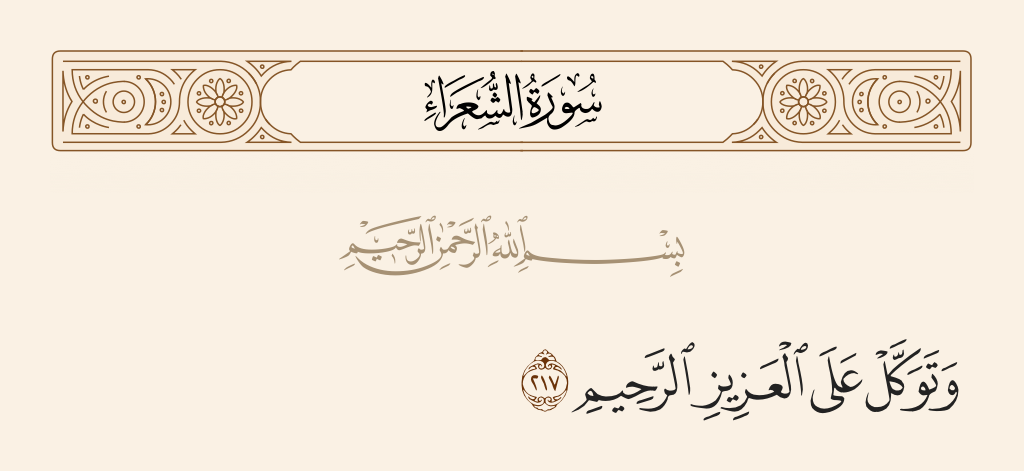 سُورَةُ الشُّعَرَاءِ
بِسْمِ ٱللَّهِ ٱلرَّحْمَٰنِ ٱلرَّحِيمِ
وَتَوَكَّلْ عَلَى ٱلْعَزِيزِ ٱلرَّحِيمِ ٢١٧